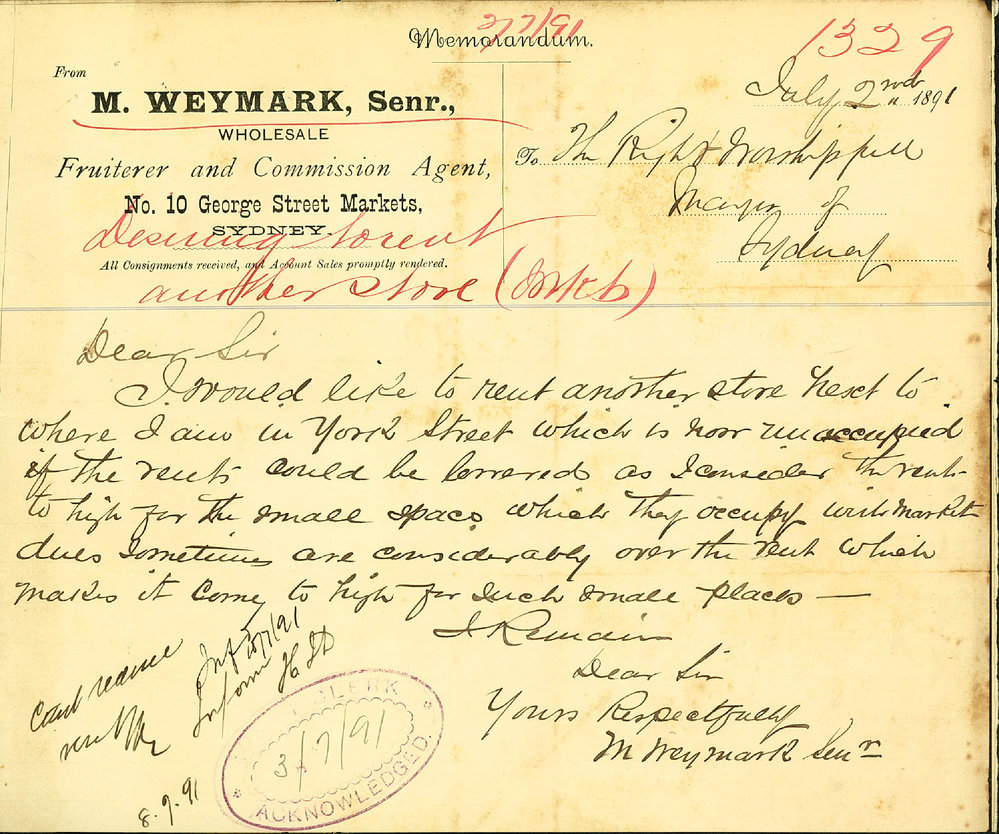 3/7/91
Memorandum.
1329
From
M. WEYMARK, Senr.,
WHOLESALE
Fruiterer and Commission Agent,
No. 10 George Street Markets,
SYDNEY.
All Consignments received, and Account Sales promptly rendered.
July 2nd 1891
To The Right Worshippfull
Mayor of
Sydney
Desiring to rent
another store (Mkts)
Dear Sir
I would like to rent another store next to
where I am in York Street which is now unoccupied
if the rents could be lowered as I consider the rents
to high for the small space which they occupy with market
dues sometimes are considerably over the rent which
makes it come to high for such small places —
I Remain
Dear Sir
Yours Respectfully
M Weymark Senr
Cant reduce
rent
8.7.91
Inf 10/7/91
Inform
CLERK
3/7/91
ACKNOWLEDGED.